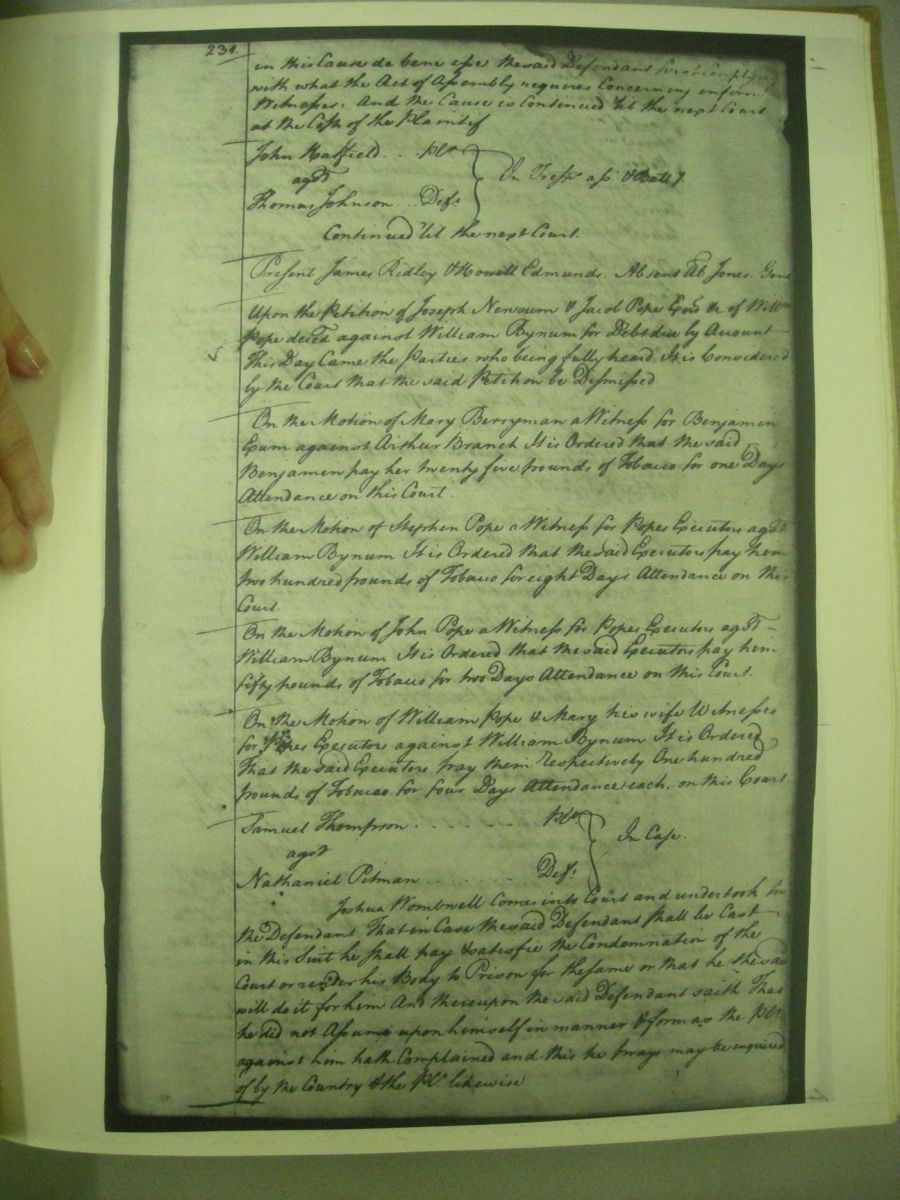 231.
in this Cause de bene esse the said Defendant for not complying
with what the Act of Assembly requires Concerning inform
Witnesses. And the Cause is Continued 'til the next Court
at the Costs of the Plaintif
John Hatfield .. Plt
agst
Thomas Johnson ... Deft
In Tresps. ass & Batty
Continued 'til the next Court.
Present James Ridley & Howell Edmunds. Absent Ab Jones. Gent
Upon the Petition of Joseph Newsum & Jacob Pope Exors &c of Willm
Pope deced against William Bynum for Debt due by Account
This Day Came the Parties who being fully heard It is Considered
by the Court that the said Petition be Dismissed
On the Motion of Mary Berryman a Witness for Benjamin
Exum against Arthur Branch It is Ordered that the said
Benjamin pay her twenty five pounds of Tobacco for one Days
Attendance on this Court.
On the Motion of Stephen Pope a Witness for Popes Executors agst
William Bynum It is Ordered that the said Executors pay him
two hundred pounds of Tobacco for eight Days Attendance on this
Court.
On the Motion of John Pope a Witness for Popes Executors agst
William Bynum It is Ordered that the said Executors pay him
fifty pounds of Tobacco for two Days Attendance on this Court.
On the Motion of William Pope & Mary his wife Witnesses
for Popes Executors against William Bynum It is Ordered
That the said Executors pay them respectively One hundred
pounds of Tobacco for four Days Attendance each, on this Court
Samuel Thompson . . . . . . Plt
agst
Nathaniel Pitman . . . . . . Deft
In Case.
Joshua Wombwell Comes into Court and undertook for
the Defendant That in Case the said Defendant shall be Cast
in this Suit he shall pay & satisfie the Condemnation of the
Court or render his Body to Prison for the same or that he the said
will do it for him And thereupon the said Defendant saith That
he did not Assume upon himself in manner & form as the Plt.
against him hath Complained and this he prays may be enquired
of by the Country & the Plt likewise